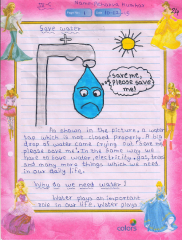 Save water
save me,
Please save
me!
As shown in the picture, a water
tap which is not closed properly. A big
drop of water come crying out save me
please save me. In the same way we
have to save water, electricity, gas, trees
and many more things which we need
in our daily life.
Why do we need water?
Water plays an important
role in our life. Water plays a
colors